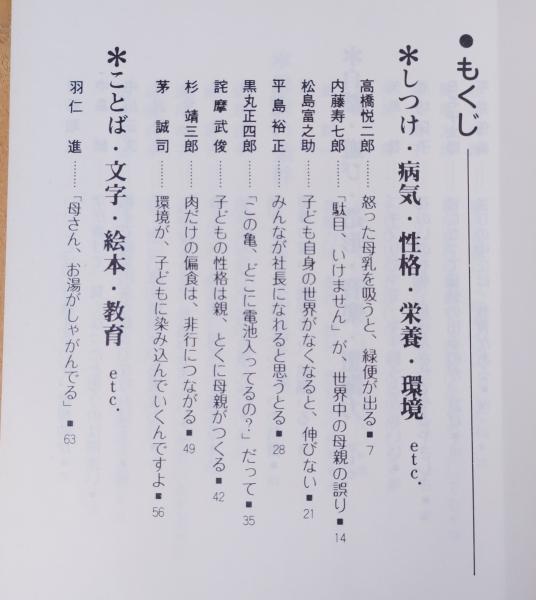 ●もくじ
＊しつけ・病気・性格・栄養・環境 etc.
高橋悦二郎………怒った母乳を吸うと、緑便が出る■7
内藤寿七郎………「駄目、いけません」が、世界中の母親の誤り■14
松島富之助………子ども自身の世界がなくなると、伸びない■21
平島裕正………みんなが社長になれると思うとる■28
黒丸正四郎………「この亀、どこに電池入ってるの？」だって■35
詫摩武俊………子どもの性格は親、とくに母親がつくる■42
杉靖三郎………肉だけの偏食は、非行につながる■49
茅誠司………環境が、子どもに染み込んでいくんですよ■56
＊ことば・文字・絵本・教育 etc.
羽仁進………「母さん、お湯がしゃがんでる」■63